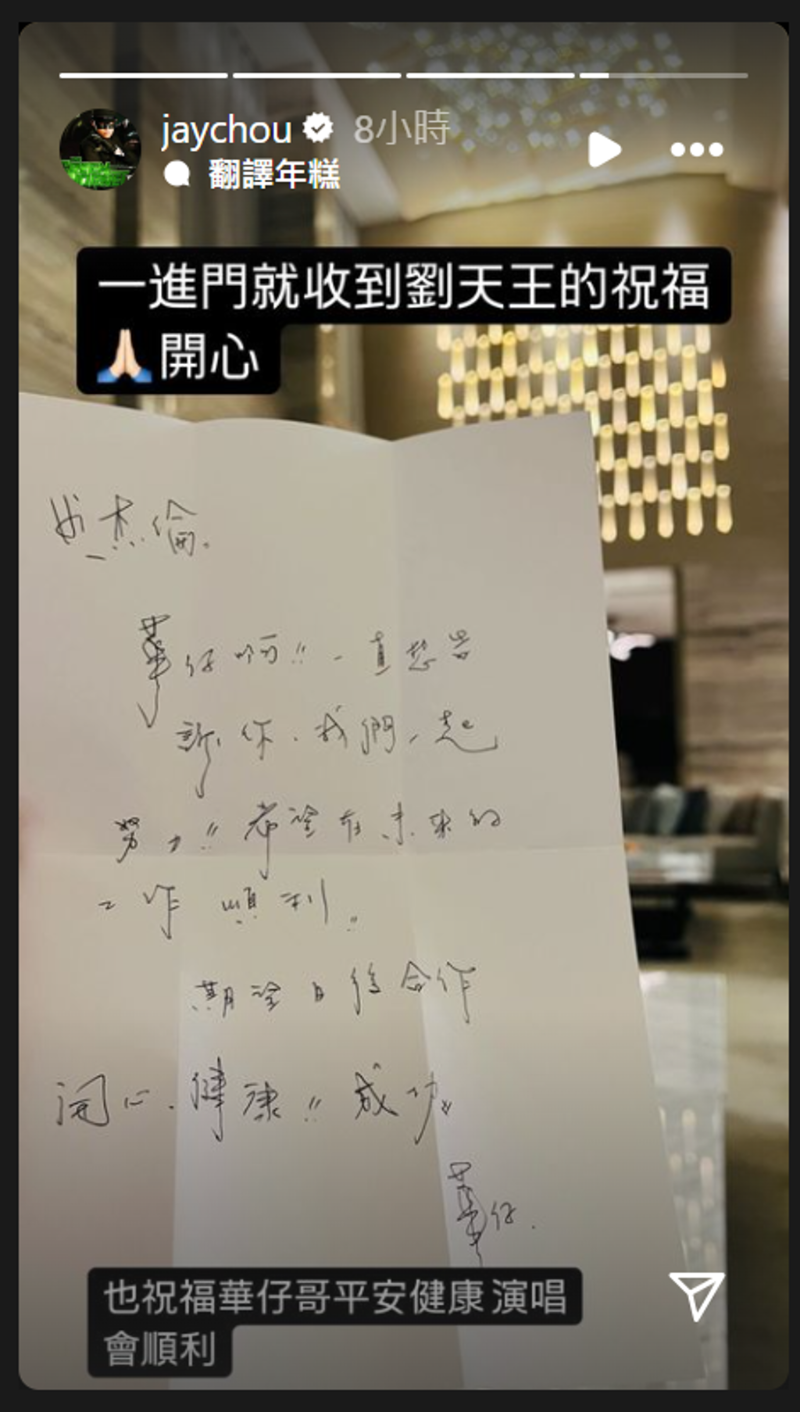 jaychou 8小時
翻譯年糕
一進門就收到劉天王的祝福
🙏🏻開心
杰倫。
華仔啊!! 一直想告
訴你.我們一起
努力!! 希望在未來的
工作 順利。
期望日後合作
開心.健康!! 成功。
華仔.
也祝福華仔哥平安健康 演唱
會順利